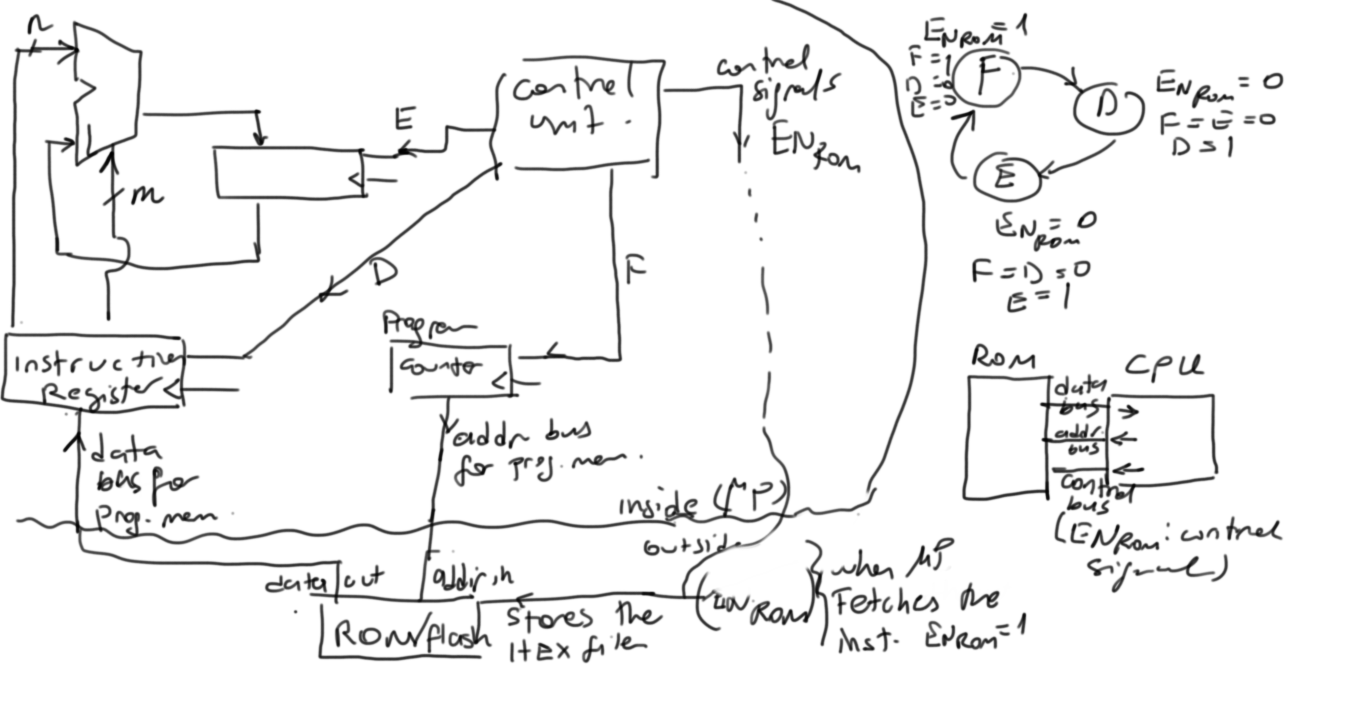 n
m
E
control
unit.
control
signals
EN ROM
D
F
Instruction
Register
Program
Counter
data
bus for
prog. mem
addr bus
for prog. mem.
inside (μP)
outside
data out
addr in
ROM/flash
stores the
HEX file
(EN ROM)
when μP
Fetches the
inst. EN ROM=1
EN ROM=1
F=1
D=0
E=0
F
D
E
EN ROM = 0
F=E=0
D=1
EN ROM = 0
F=D=0
E=1
ROM
CPU
data
bus
addr.
bus
control
bus
(EN ROM: control
signal)